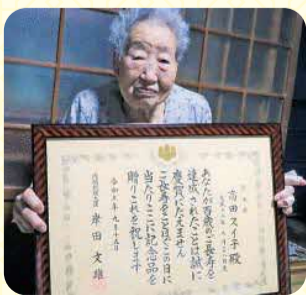 高田スイ子殿
あなたが百歳のご長寿を
達成されたことは誠に
慶賀にたえません
ご長寿をことほぐこの日に
当たりここに記念品を
贈りこれを祝します
令和五年九月十五日
内閣総理大臣 岸田文雄